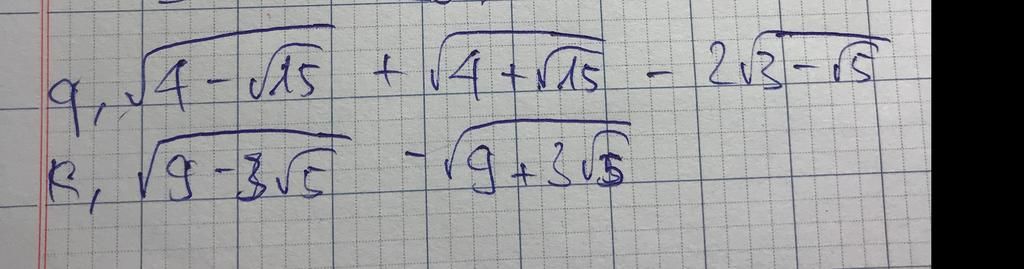 q, √(4 - √15) + √(4 + √15) - 2√(3 - √5)
r, √(9 - 3√5) - √(9 + 3√5)